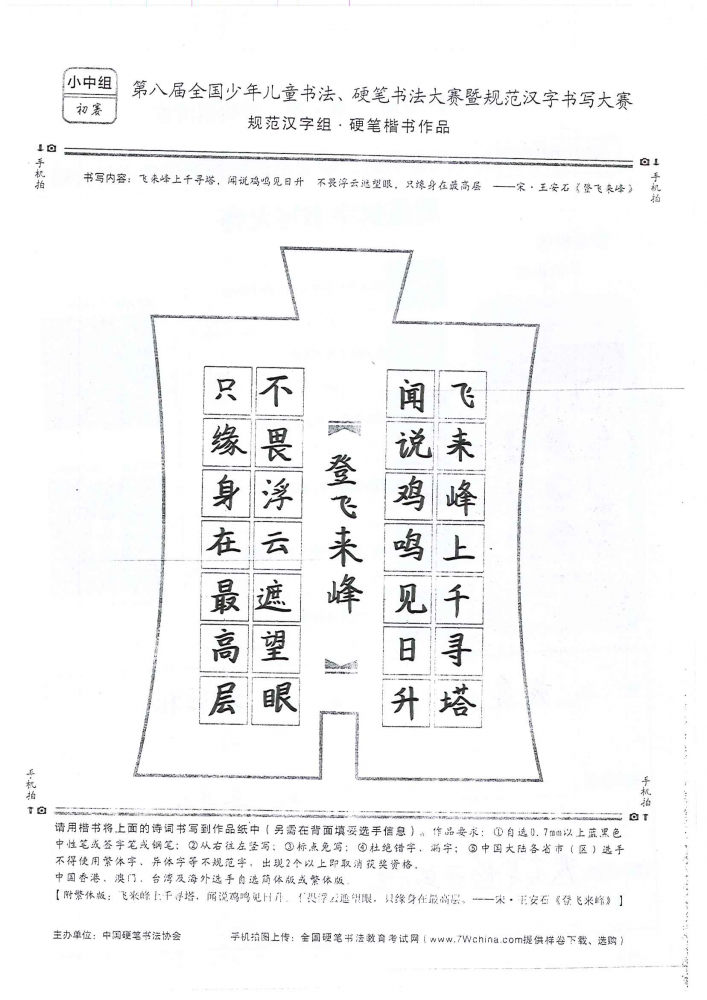 小中组
初赛
第八届全国少年儿童书法、硬笔书法大赛暨规范汉字书写大赛
规范汉字组·硬笔楷书作品
手机拍
手机拍
书写内容：飞来峰上千寻塔，闻说鸡鸣见日升 不畏浮云遮望眼，只缘身在最高层 ——宋·王安石《登飞来峰》
飞来峰上千寻塔
闻说鸡鸣见日升
登飞来峰
不畏浮云遮望眼
只缘身在最高层
手机拍
手机拍
请用楷书将上面的诗词书写到作品纸中（另需在背面填妥选手信息）。作品要求：①自选0.7mm以上蓝黑色
中性笔或签字笔或钢笔；②从右往左竖写；③标点免写；④杜绝错字、漏字；⑤中国大陆各省市（区）选手
不得使用繁体字、异体字等不规范字，出现2个以上即取消获奖资格，
中国香港、澳门、台湾及海外选手自选简体版或繁体版
【附繁体版：飞来峰上千寻塔，闻说鸡鸣见日升 不畏浮云遮望眼，只缘身在最高层。——宋·王安石《登飞来峰》】
主办单位：中国硬笔书法协会 手机拍图上传：全国硬笔书法教育考试网（www.7Wchina.com提供样卷下载、选购）